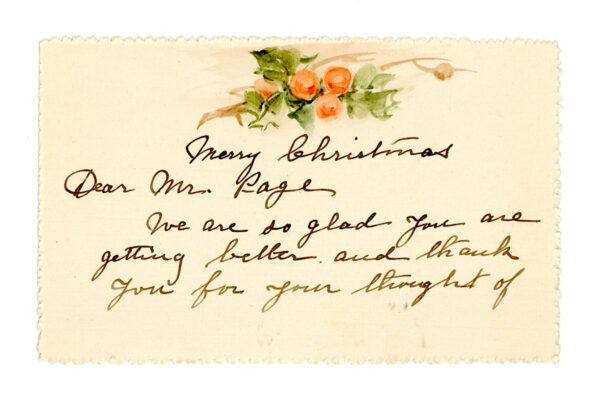 Merry Christmas
Dear Mr. Page
We are so glad you are
getting better. and thank
you for your thought of